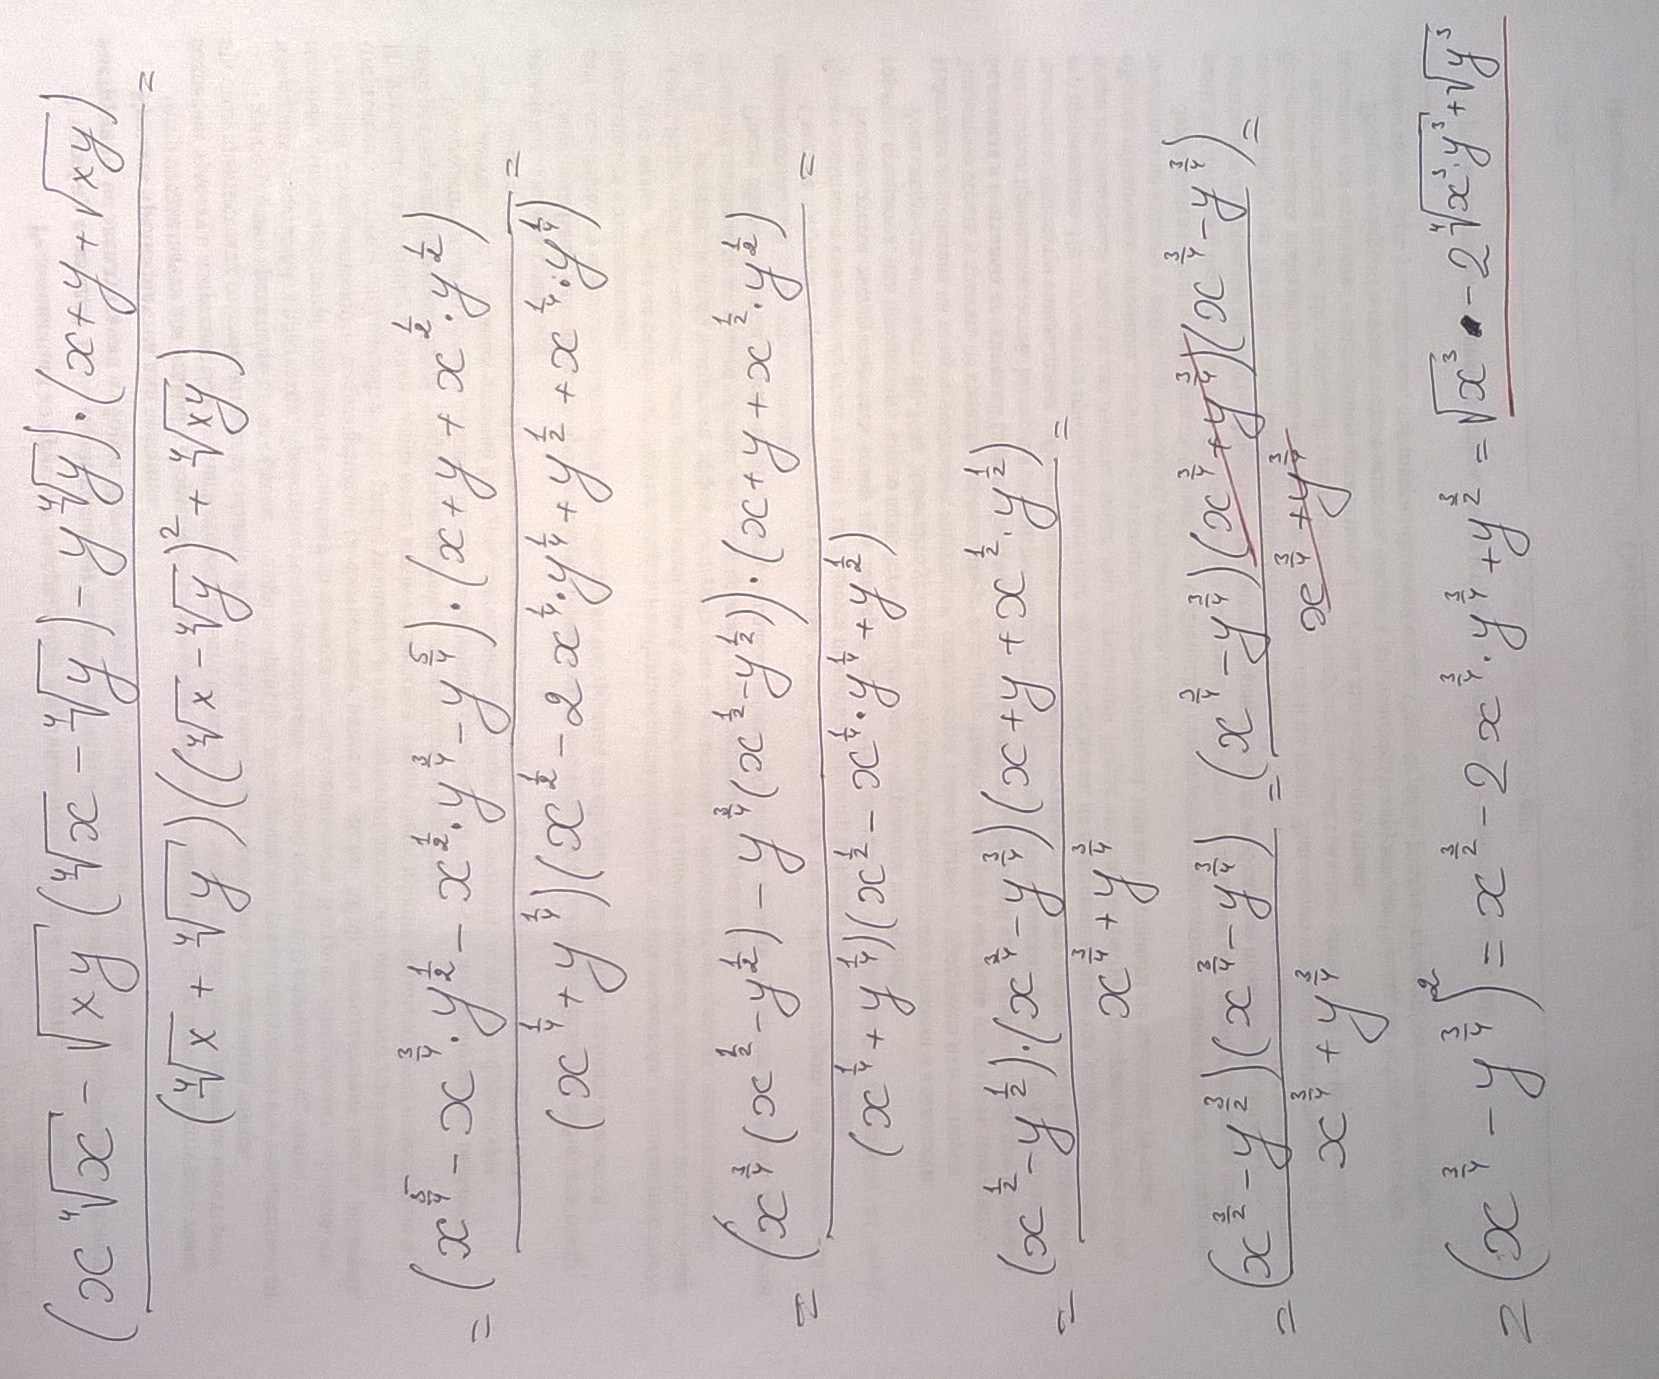 (x⁴√x - √xy (⁴√x - ⁴√y) - y ⁴√y) · (x + y + √xy) =
(⁴√x + ⁴√y)((⁴√x - ⁴√y)² + ⁴√xy)
= (x^(5/4) - x^(3/4) · y^(1/2) - x^(1/2) · y^(3/4) - y^(5/4)) · (x + y + x^(1/2) · y^(1/2)) =
(x^(1/4) + y^(1/4))(x^(1/2) - 2x^(1/4) · y^(1/4) + y^(1/2) + x^(1/4) · y^(1/4))
= (x^(3/4) (x^(1/2) - y^(1/2)) - y^(3/4) (x^(1/2) - y^(1/2))) · (x + y + x^(1/2) · y^(1/2)) =
(x^(1/4) + y^(1/4))(x^(1/2) - x^(1/4) · y^(1/4) + y^(1/2))
= (x^(1/2) - y^(1/2)) · (x^(3/4) - y^(3/4))(x + y + x^(1/2) · y^(1/2)) =
x^(3/4) + y^(3/4)
= (x^(3/2) - y^(3/2))(x^(3/4) - y^(3/4)) = (x^(3/4) - y^(3/4))(x^(3/4) + y^(3/4))(x^(3/4) - y^(3/4)) =
x^(3/4) + y^(3/4) x^(3/4) + y^(3/4)
= (x^(3/4) - y^(3/4))² = x^(3/2) - 2x^(3/4) · y^(3/4) + y^(3/2) = √x³ - 2 ⁴√x³·y³ + √y³